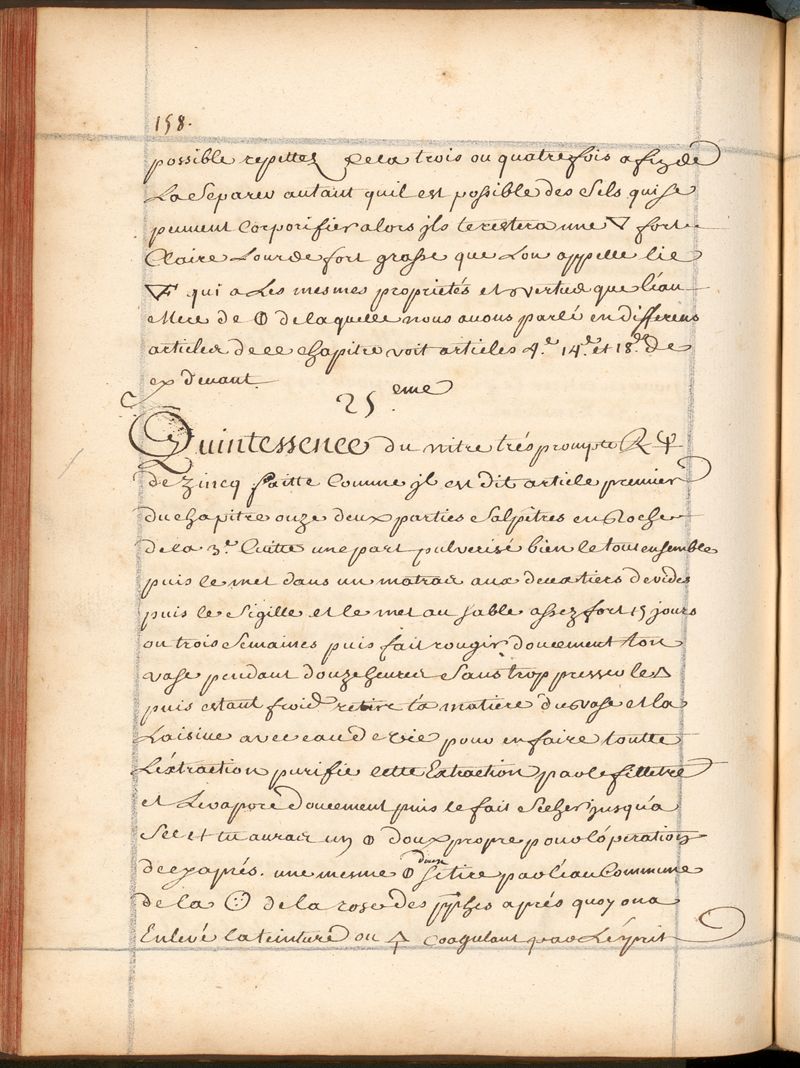 158.
possible repittez cela trois ou quatre fois afin de
La Separer autant quil est possible des Sels qui se
peuvent Corporifier alors jls te restera une 🜄 fort
Claire Lourde fort grasse que Lon appelle lie
🜄 qui a Les mesmes proprietés et vertus que l'eau
Mere de 🜕 de laquelle nous avons parlé en differens
articles de ce chapitre voit articles 4.e 14.e et 18.e de
cy devant.
25.eme
Quintessence du nitre trés prompte ℞ 🜍
de Zincq faitte Comme jl est dit article premier
du chapitre onze deux parties Salpêtres en Roche
de la 3.e Cuitte une part pulverisé bien le tout ensemble
puis le met dans un matras aux deux tiers de vides
puis le Sigille et le met au sable assez fort 15 jours
ou trois Semaines puis fait rougir doucement ton
vase pendant douze heures Sans trop presser le 🜂
puis estant froid retire ta matiere du vase et la
Laisive avec eau de vie pour en faire toutte
L'extraction purifie cette Extraction par le filletre
et L'evapore doucement puis le fait Secher jusqu'a
Sec et tu auras un 🜕 doux propre pour l'óperation
de cy aprés. une mesme 🜕 doux se tire par l'eau Commune
de la de la rose des aprés quoy on a
Enlevé la teinture ou 🜍 Coagulant par L'esprit